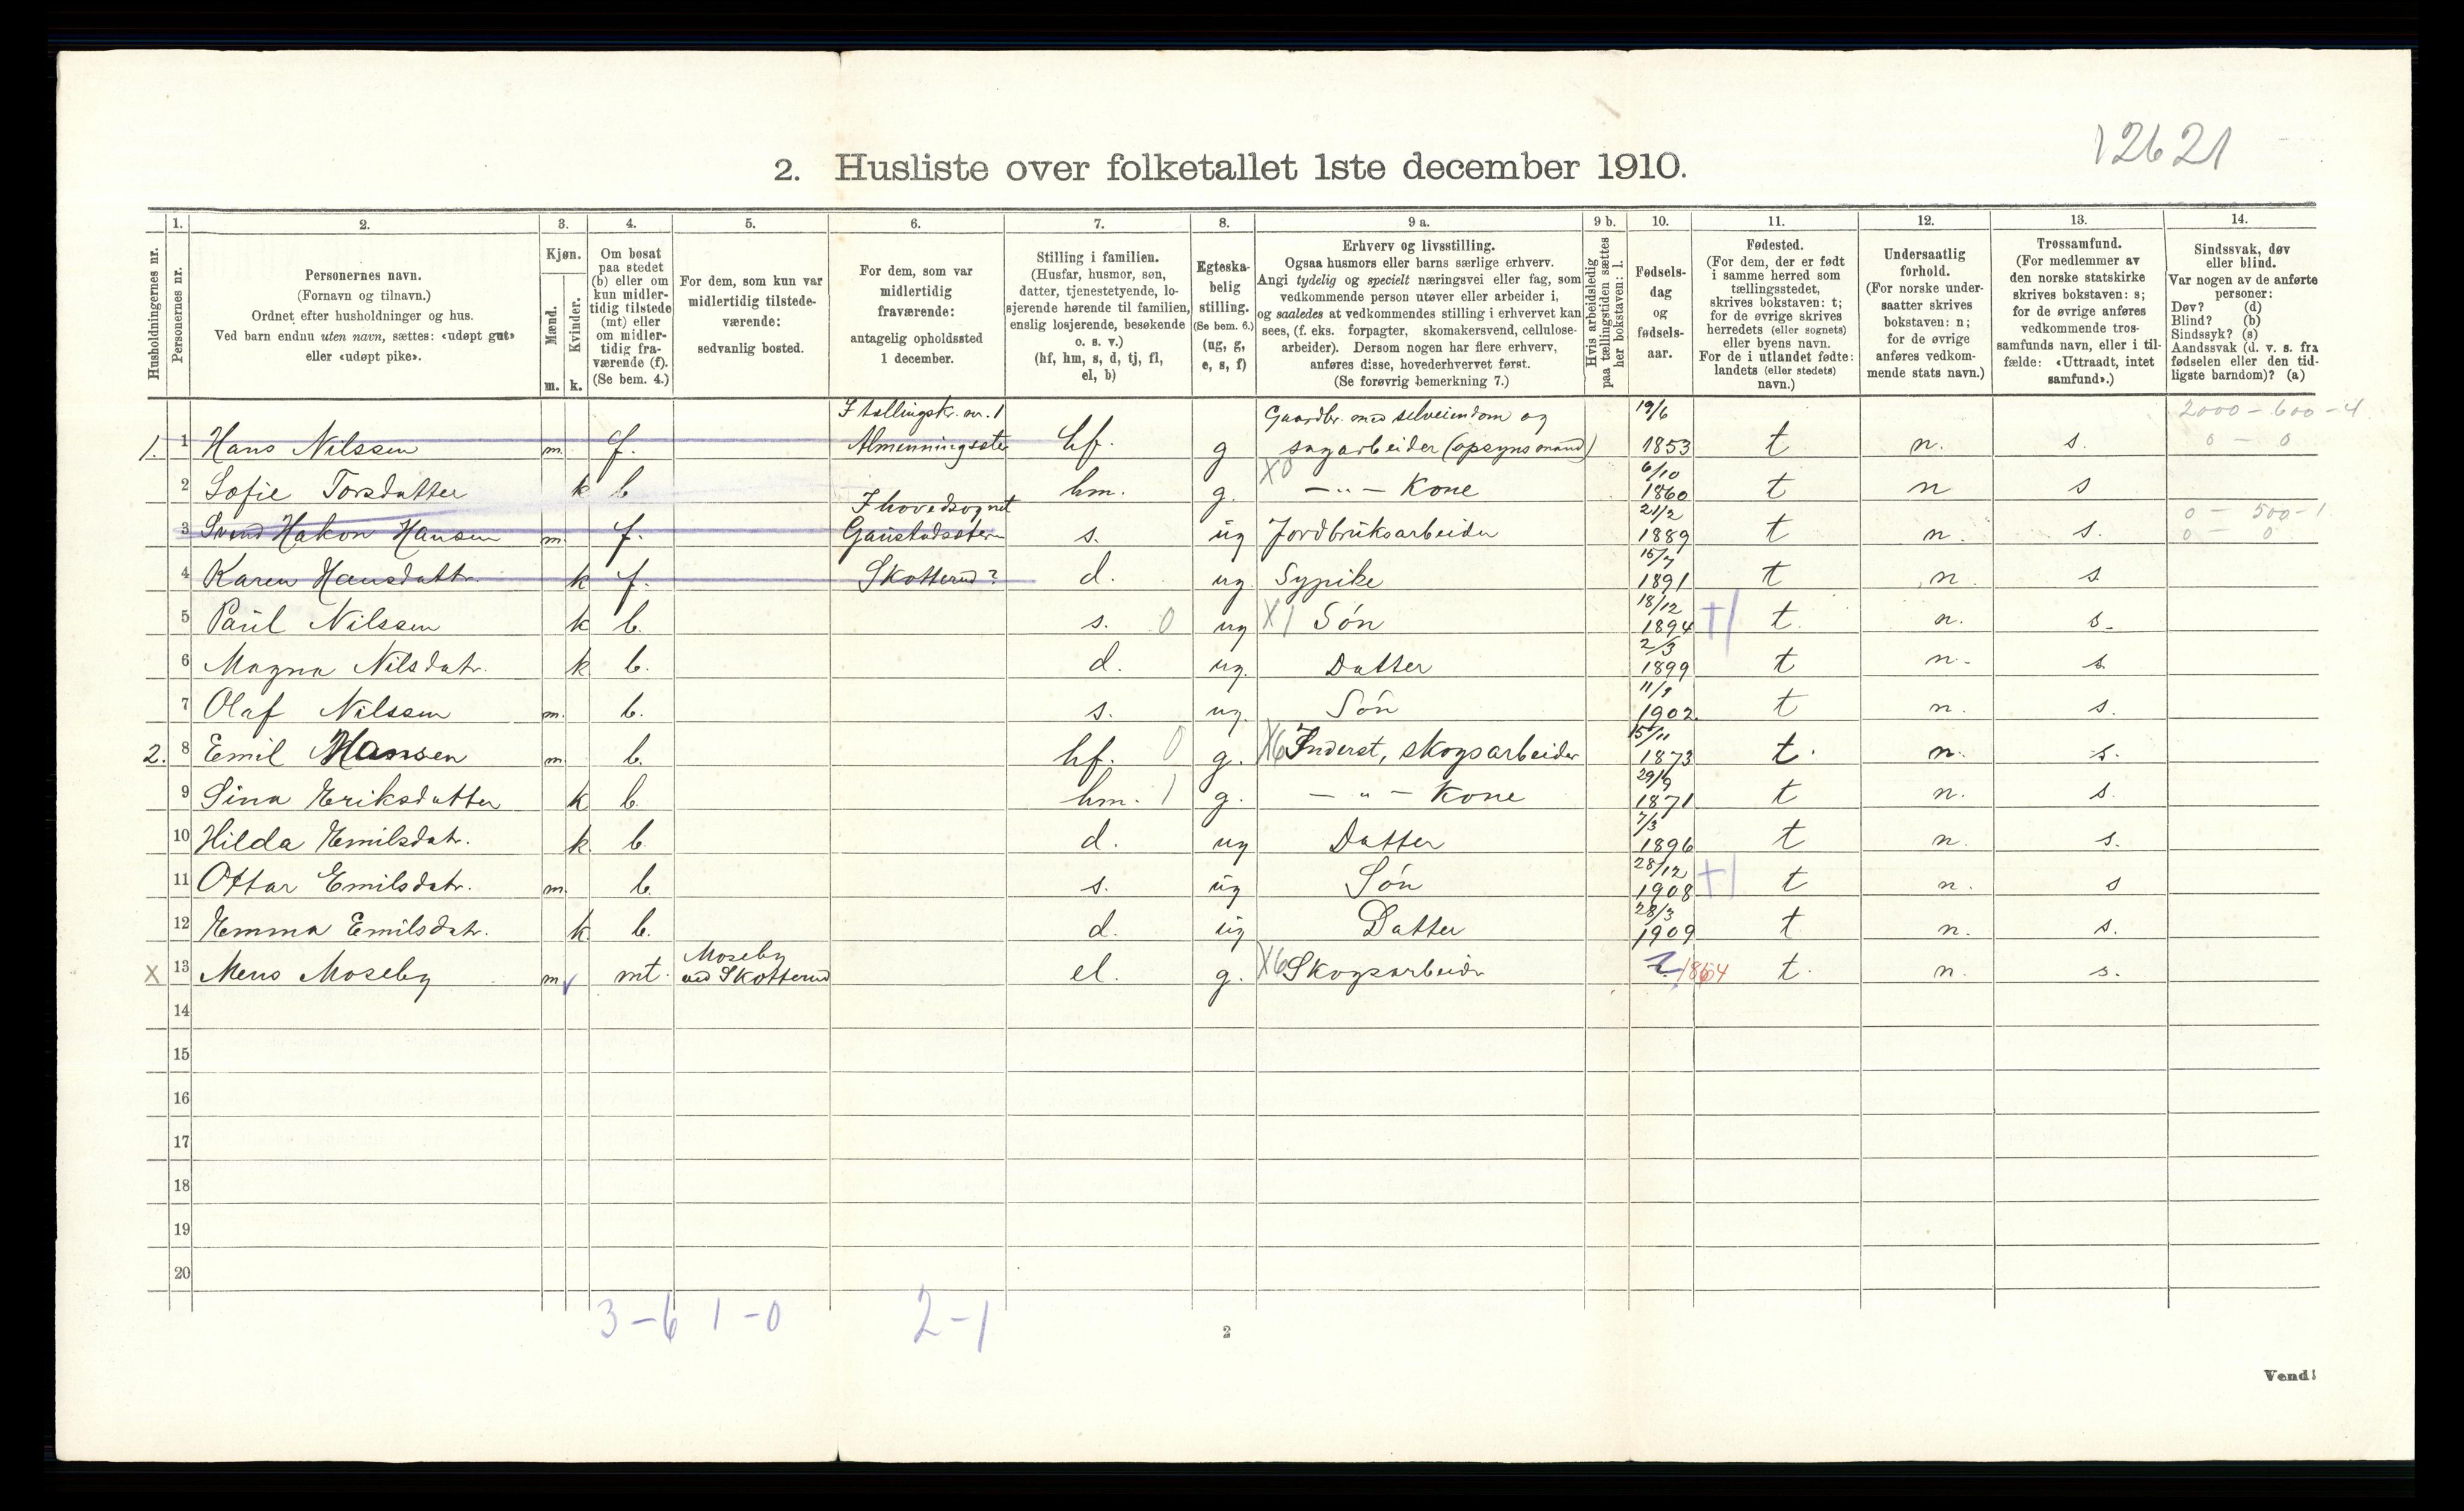 12621
2. Husliste over folketallet 1ste december 1910.
1. 2. 3. 4. 5. 6. 7. 8. 9 a. 9 b. 10. 11. 12. 13. 14.
Husholdningernes nr.
Personernes nr.
Personernes navn.
(Fornavn og tilnavn.)
Ordnet efter husholdninger og hus.
Ved barn endnu uten navn, sættes: «udøpt gut»
eller «udøpt pike».
Kjøn.
Mænd.
Kvinder.
m. k.
Om bosat
paa stedet
(b) eller om
kun midler-
tidig tilstede
(mt) eller
om midler-
tidig fra-
værende (f).
(Se bem. 4.)
For dem, som kun var
midlertidig tilstede-
værende:
sedvanlig bosted.
For dem, som var
midlertidig
fraværende:
antagelig opholdssted
1 december.
Stilling i familien.
(Husfar, husmor, søn,
datter, tjenestetyende, lo-
sjerende hørende til familien,
enslig losjerende, besøkende
o. s. v.)
(hf, hm, s, d, tj, fl,
el, b)
Egteska-
belig
stilling.
(Se bem. 6.)
(ug, g,
e, s, f)
Erhverv og livsstilling.
Ogsaa husmors eller barns særlige erhverv.
Angi tydelig og specielt næringsvei eller fag, som
vedkommende person utøver eller arbeider i,
og saaledes at vedkommendes stilling i erhvervet kan
sees, (f. eks. forpagter, skomakersvend, cellulose-
arbeider). Dersom nogen har flere erhverv,
anføres disse, hovederhvervet først.
(Se forøvrig bemerkning 7.)
Hvis arbeidsledig
paa tællingstiden sættes
her bokstaven: l.
Fødsels-
dag
og
fødsels-
aar.
Fødested.
(For dem, der er født
i samme herred som
tællingsstedet,
skrives bokstaven: t;
for de øvrige skrives
herredets (eller sognets)
eller byens navn.
For de i utlandet fødte:
landets (eller stedets)
navn.)
Undersaatlig
forhold.
(For norske under-
saatter skrives
bokstaven: n;
for de øvrige
anføres vedkom-
mende stats navn.)
Trossamfund.
(For medlemmer av
den norske statskirke
skrives bokstaven: s;
for de øvrige anføres
vedkommende tros-
samfunds navn, eller i til-
fælde: «Uttraadt, intet
samfund».)
Sindssvak, døv
eller blind.
Var nogen av de anførte
personer:
Døv? (d)
Blind? (b)
Sindssyk? (s)
Aandssvak (d. v. s. fra
fødselen eller den tid-
ligste barndom)? (a)
I tællingskr. nr. 1 Gaardbr. med selveiendom og 19/6 2000 - 600 - 4
1. 1 Hans Nilssen m. f. hf. g sagarbeider (opsynsmand) 1853 t n. s. 0 - 0
2 Sofie Torsdatter k b hm. g. X0 - " - Kone 6/10 1860 t n s
I hovedsognet 0 - 500 - 1
3 Svend Hakon Hansen m. f. s. ug Jordbruksarbeider 21/2 1889 t n. s. 0 - 0
4 Karen Hansdattr. k f. Skotterud? d. ug. Sypike 15/7 1891 t n. s
5 Paul Nilssen k b. s. 0 ug X1 Søn 18/12 1894 t. n. s.
6 Magna Nilsdatr. k b. d. ug. Datter 2/3 1899 t n. s.
7 Olaf Nilssen m. b. s. ug. Søn 1902 t n. s.
2. 8 Emil Hansen m b. hf. 0 g. X6 Inderst, skogsarbeider 15/11 1873 t. n. s.
9 Sina Eriksdatter k b. hm. 1 g. - " - Kone 1871 t n. s.
10 Hilda Emilsdatr. k. b. d. ug Datter 7/3 1896 t n. s.
11 Ottar Emilsdatr. m. b. s. ug Søn 28/12 1908 t n. s
12 Emma Emilsdatr. k b. d. ug Datter 28/3 1909 t n. s.
Moseby
X 13 Mens Moseby m mt. ved Skotterud el. g. X6 Skogsarbeidr ? 1864 t. n. s.
14
15
16
17
18
19
20
3-6 1-0 2-1
2
Vend!